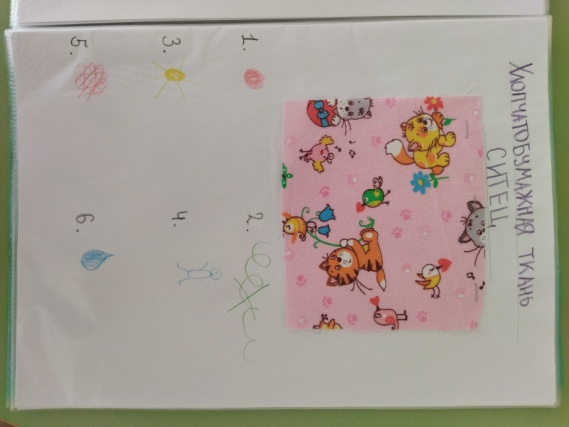 ХЛОПЧАТОБУМАЖНАЯ ТКАНЬ
СИТЕЦ
1. 2.
3. 4.
5. 6.